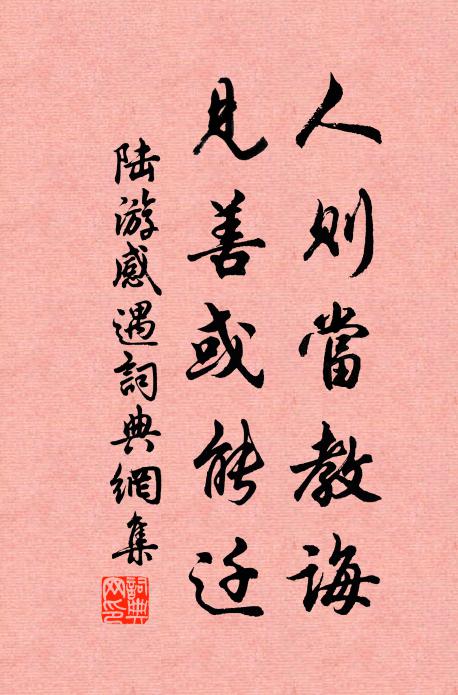 人則當教誨
見善或能迁
陆游感遇詞典網集
詞典網印